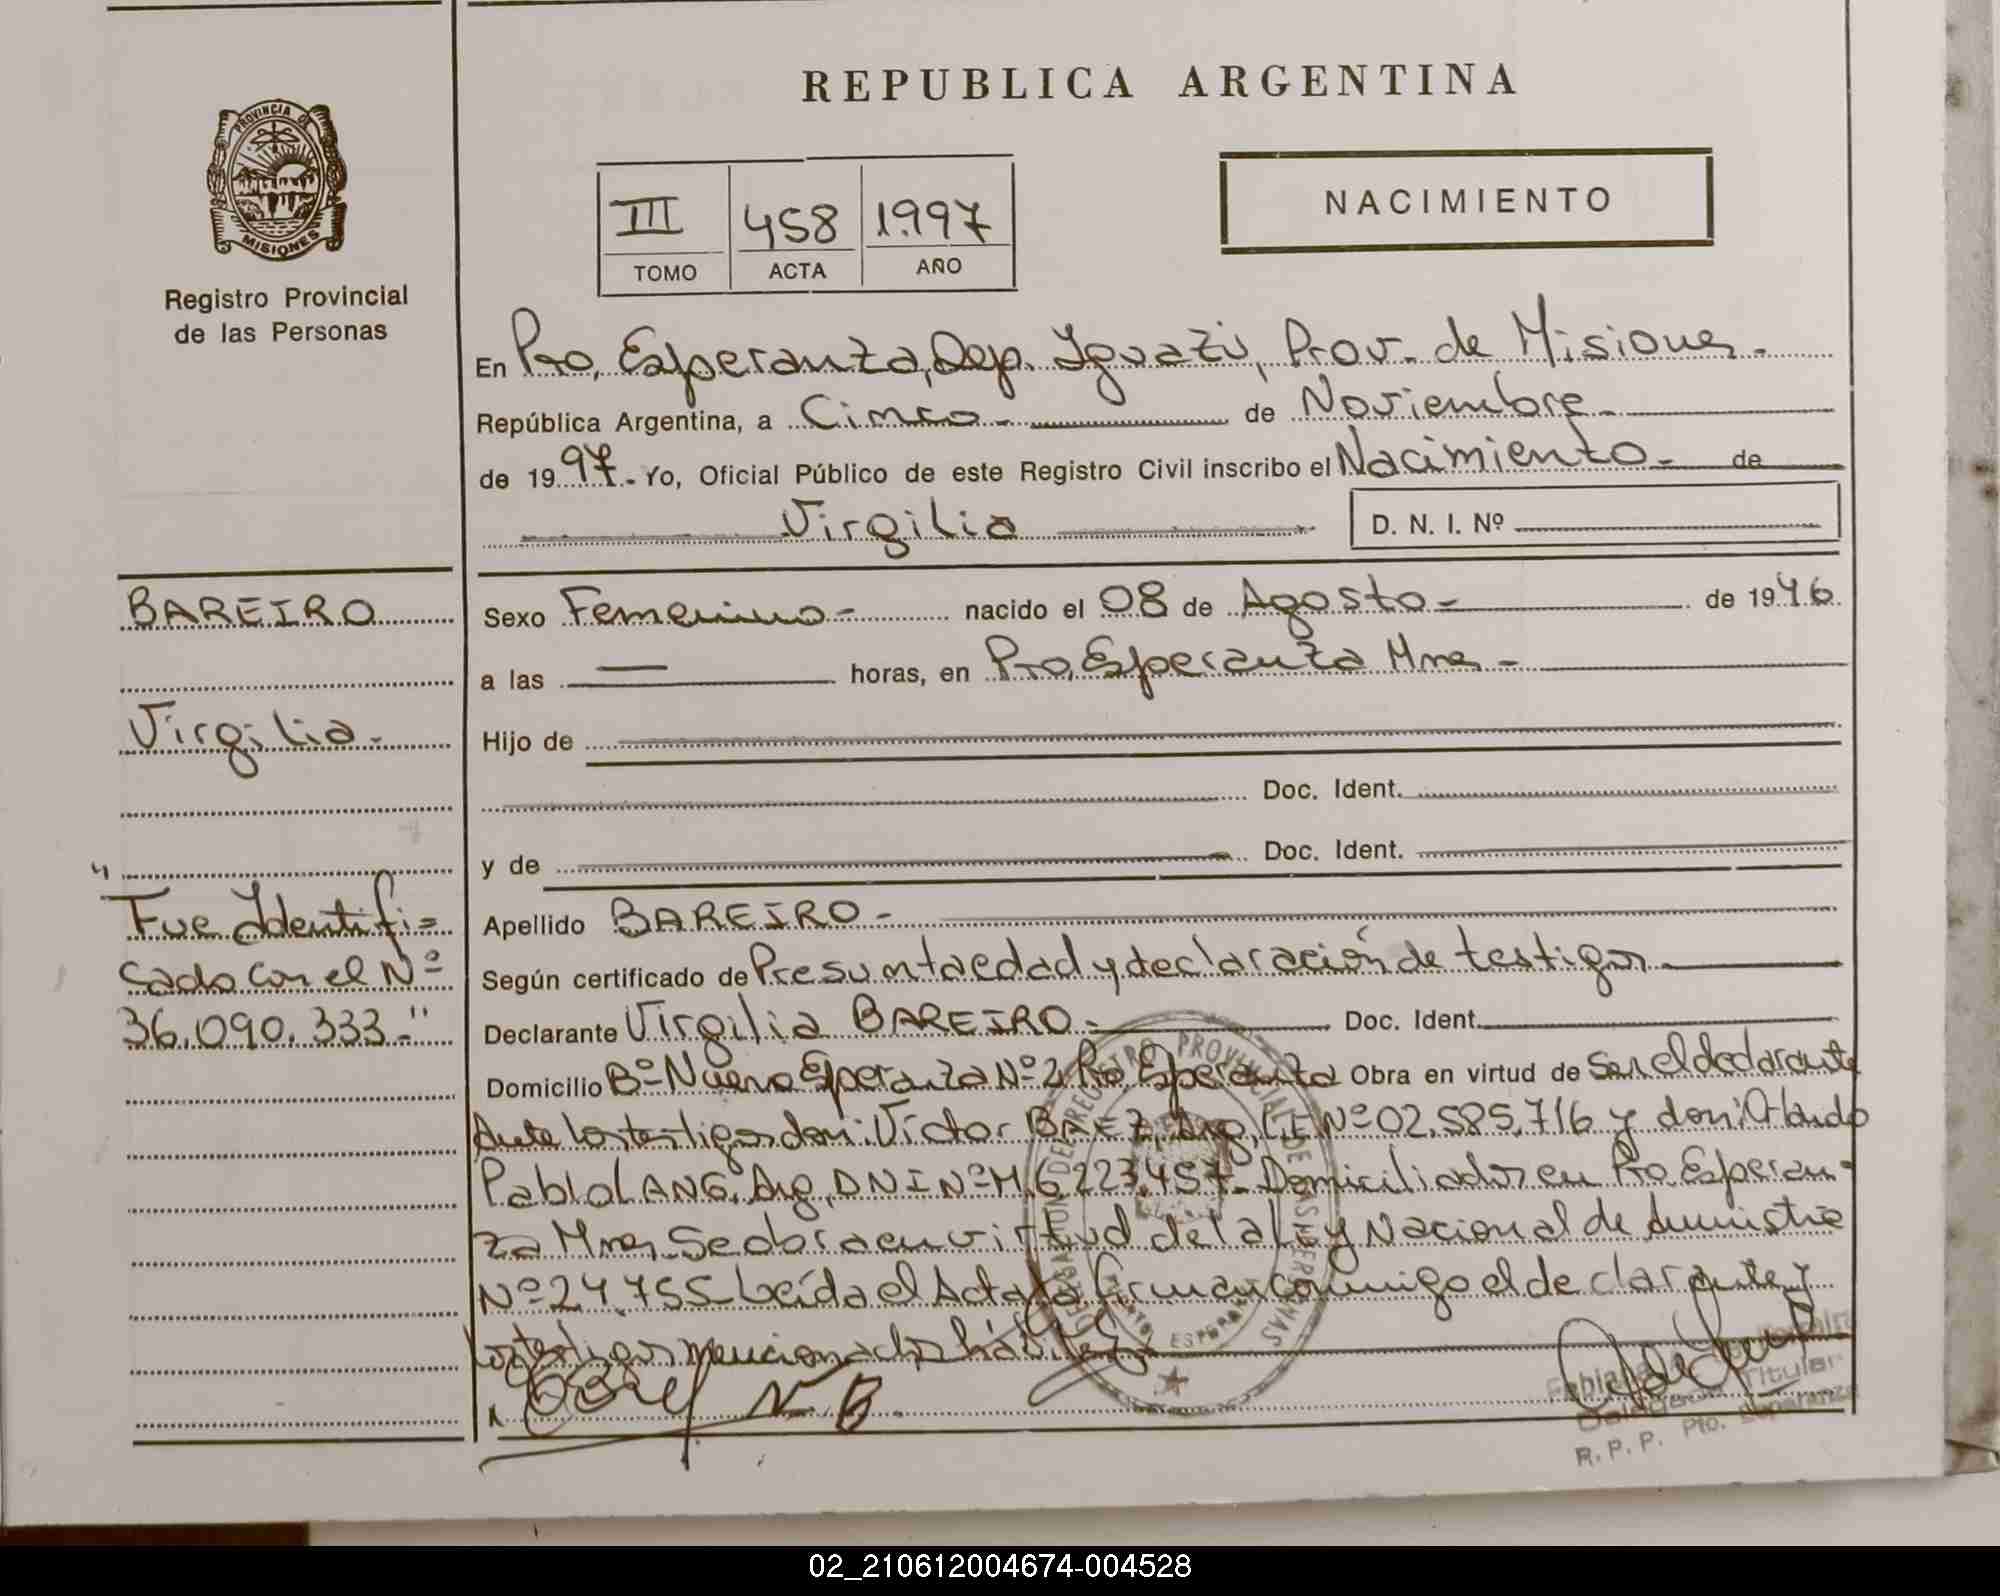 REPUBLICA ARGENTINA
PROVINCIA DE
MISIONES
Registro Provincial
de las Personas
III 458 1.997
TOMO ACTA AÑO
NACIMIENTO
En Pto. Esperanza, Dep. Iguazú, Prov. de Misiones.
República Argentina, a Cinco de Noviembre
de 1997. Yo, Oficial Público de este Registro Civil inscribo el Nacimiento de
Virgilia D. N. I. Nº
BAREIRO
Virgilia.
"Fue Identifi=
cado con el Nº
36.090.333."
Sexo Femenino nacido el 08 de Agosto de 1946
a las — horas, en Pto. Esperanza Mnes
Hijo de
Doc. Ident.
y de Doc. Ident.
Apellido BAREIRO
Según certificado de Presunta edad y declaración de testigos
Declarante Virgilia BAREIRO Doc. Ident.
Domicilio Bº Nueva Esperanza Nº 2 Pto Esperanza Obra en virtud de Ser el declarante
Ante los testigos don: Víctor BAEZ, Arg, CI Nº 02.585.716 y don:
Pablo LANG. Arg, DNI Nº M.6.223.457 Domiciliados en Pto Esperan-
za Mnes Se labra en virtud de la Ley Nacional de Amnistia
Nº 24.755 Leída el Acta la firman conmigo el declarante y
los testigos mencionados hábiles
N. B.
REGISTRO PROVINCIAL DE LAS PERSONAS
Titular
R. P. P. Pto. Esperanza
02_210612004674-004528